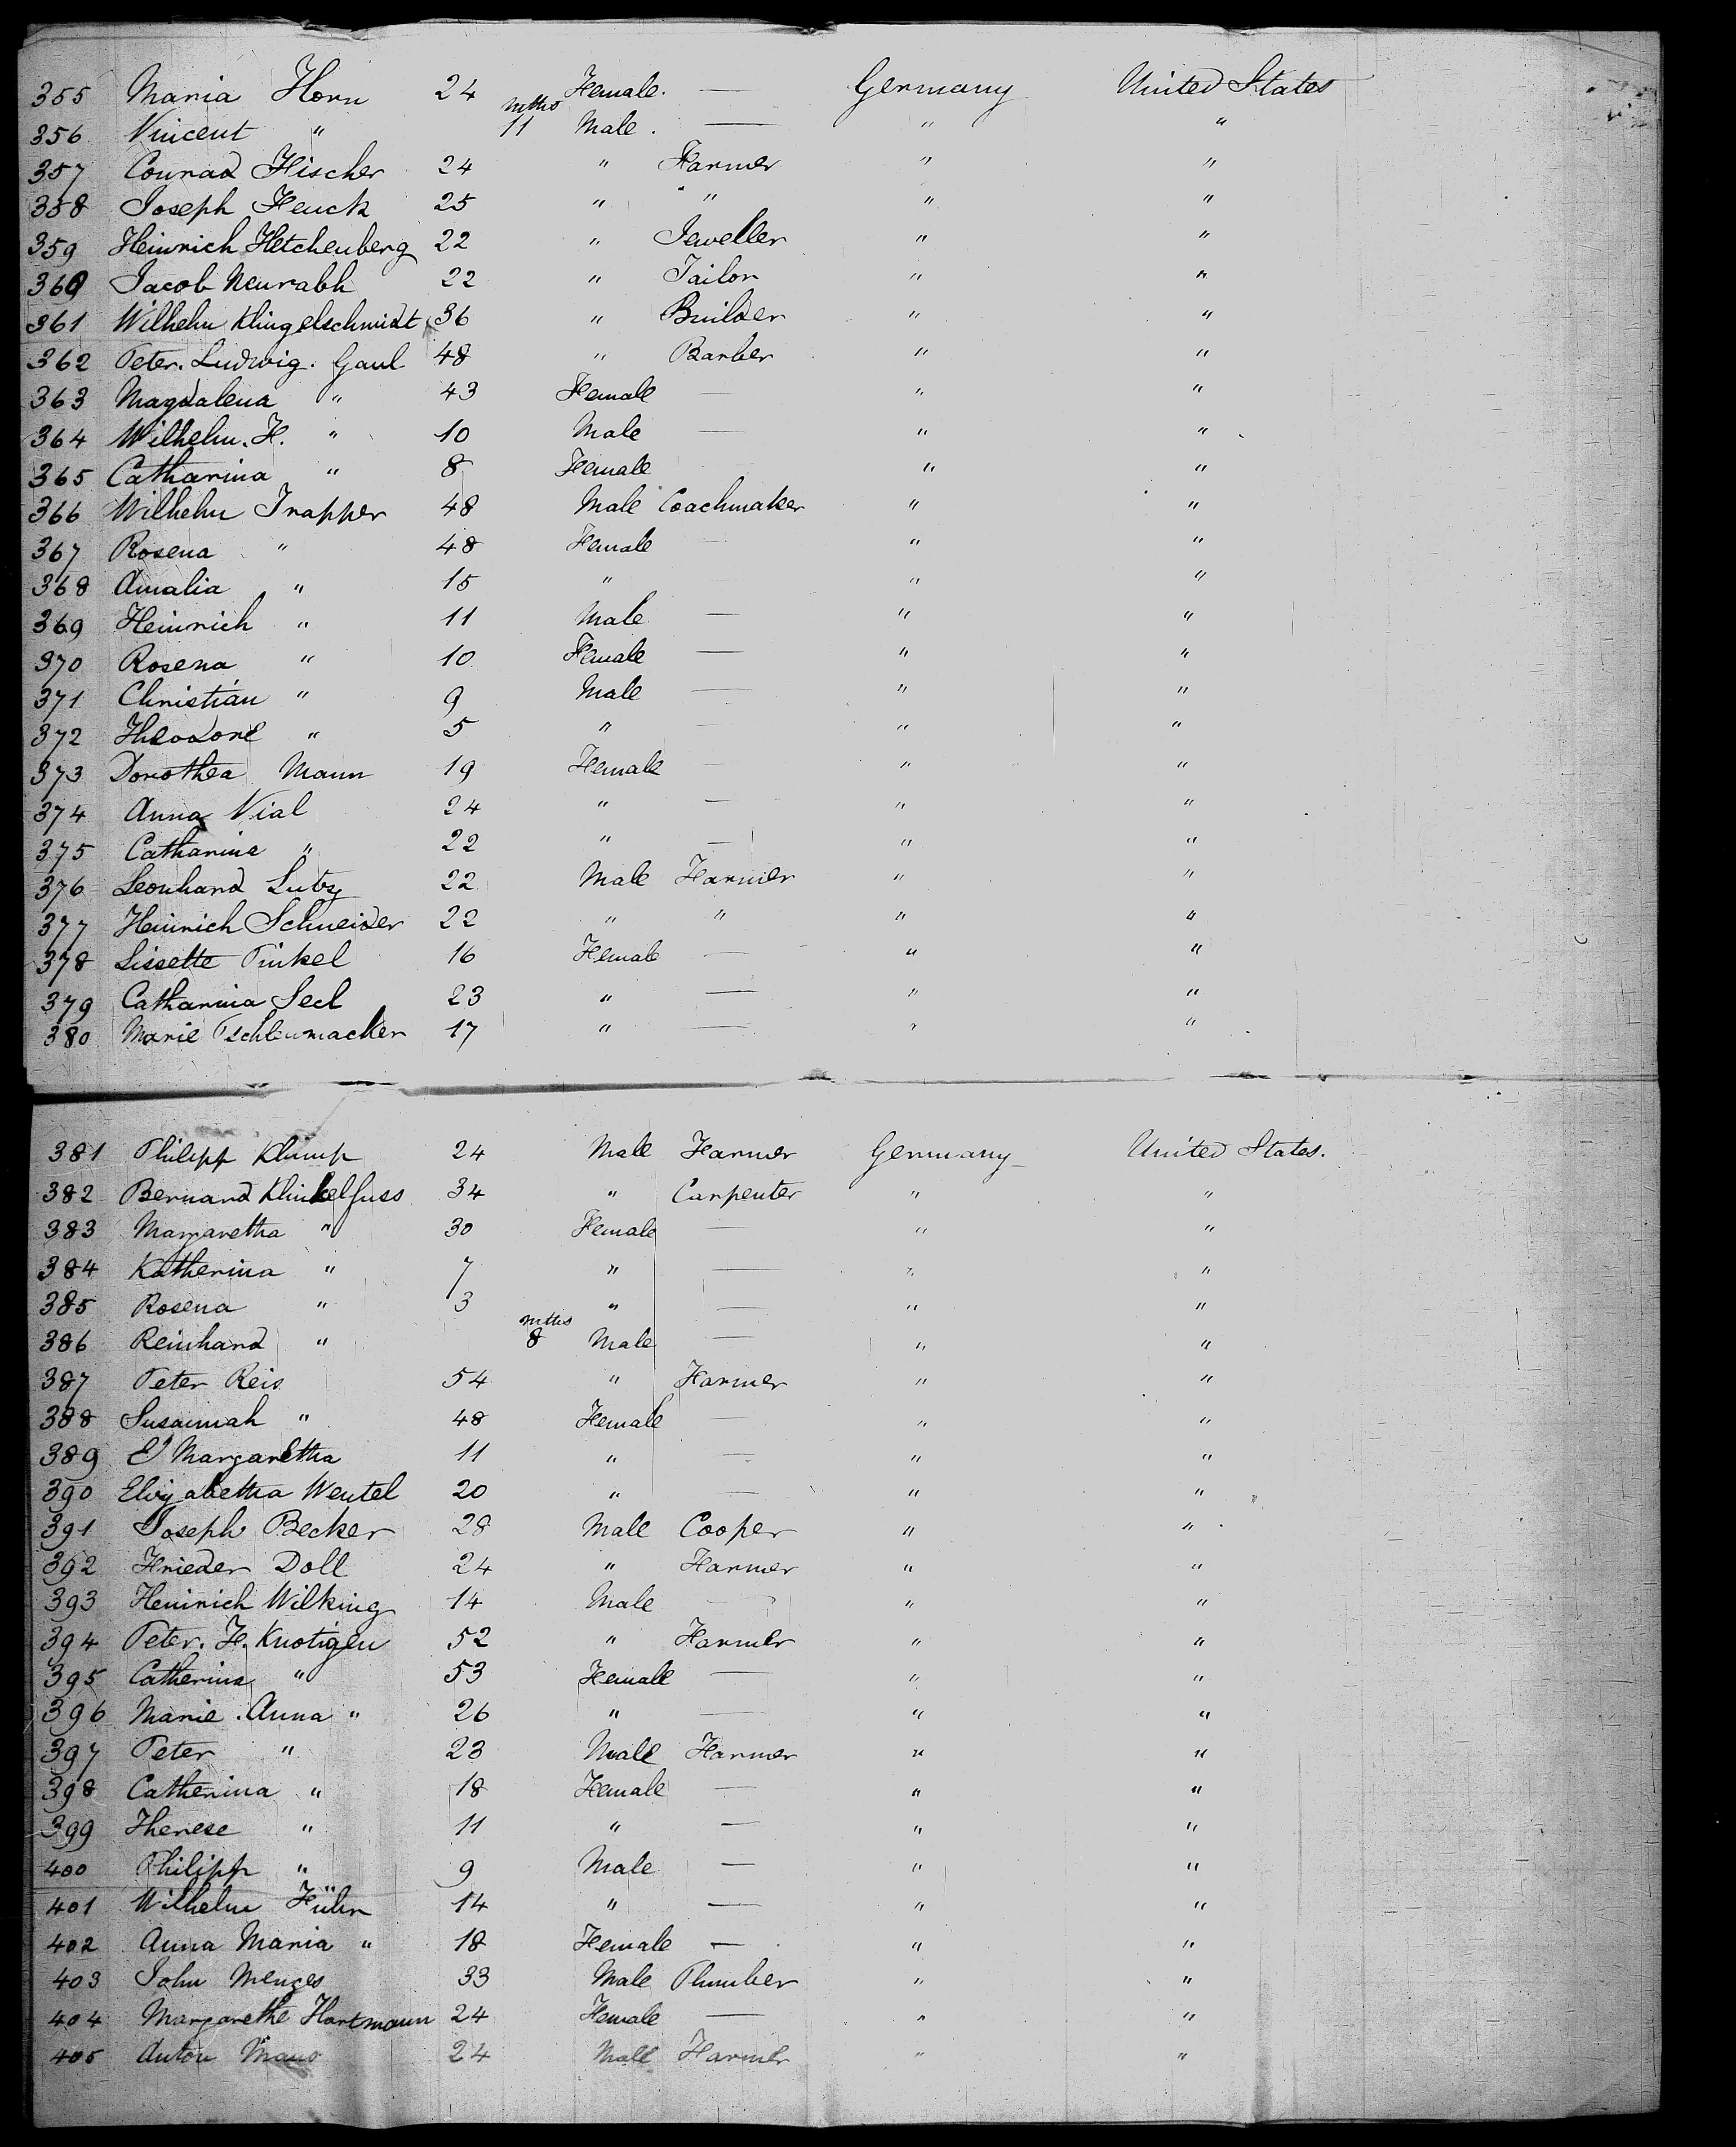 355 Maria Horn 24 Female. — Germany United States
356 Vincent " mths 11 Male. — " "
357 Conrad Fischer 24 " Farmer " "
358 Joseph Henck 25 " " " "
359 Heinrich Hetchenberg 22 " Jeweller " "
360 Jacob Neurabh 22 " Tailor " "
361 Wilhelm Klingelschmidt 36 " Builder " "
362 Peter. Ludwig. Gaul 48 " Barber " "
363 Magdalena " 43 Female — " "
364 Wilhelm. H. " 10 Male — " "
365 Catharina " 8 Female " "
366 Wilhelm Trapper 48 Male Coachmaker " "
367 Rosena " 48 Female — " "
368 Amalia " 15 " — " "
369 Heinrich " 11 Male — " "
370 Rosena " 10 Female — " "
371 Christian " 9 Male — " "
372 Theodore " 5 " — " "
373 Dorothea Mann 19 Female — " "
374 Anna Vial 24 " — " "
375 Catharine " 22 " — " "
376 Leonhard Lutz 22 Male Farmer " "
377 Heinrich Schneider 22 " " " "
378 Lissette Pinkel 16 Female — " "
379 Catharina Seel 23 " — " "
380 Marie 17 " — " "
381 Philipp Klump 24 Male Farmer Germany United States.
382 Bernard Klinkelfuss 34 " Carpenter " "
383 Margaretha " 30 Female — " "
384 Katherina " 7 " — " "
385 Rosena " 3 " — " "
386 Reinhard " mths 8 Male — " "
387 Peter Reis 54 " Farmer " "
388 Susannah " 48 Female — " "
389 El Margaretha 11 " — " "
390 Elizabetha Wentel 20 " — " "
391 Joseph Becker 28 Male Cooper " "
392 Frieder Doll 24 " Farmer " "
393 Heinrich Wilking 14 Male — " "
394 Peter. H. Knotigen 52 " Farmer " "
395 Catherina " 53 Female — " "
396 Marie. Anna " 26 " — " "
397 Peter " 23 Male Farmer " "
398 Catherina " 18 Female — " "
399 Therese " 11 " — " "
400 Philipp " 9 Male — " "
401 Wilhelm Hühn 14 " — " "
402 Anna Maria " 18 Female — " "
403 John Menges 33 Male Plumber " "
404 Margarethe Hartmann 24 Female — " "
405 Anton 24 Male Farmer " "